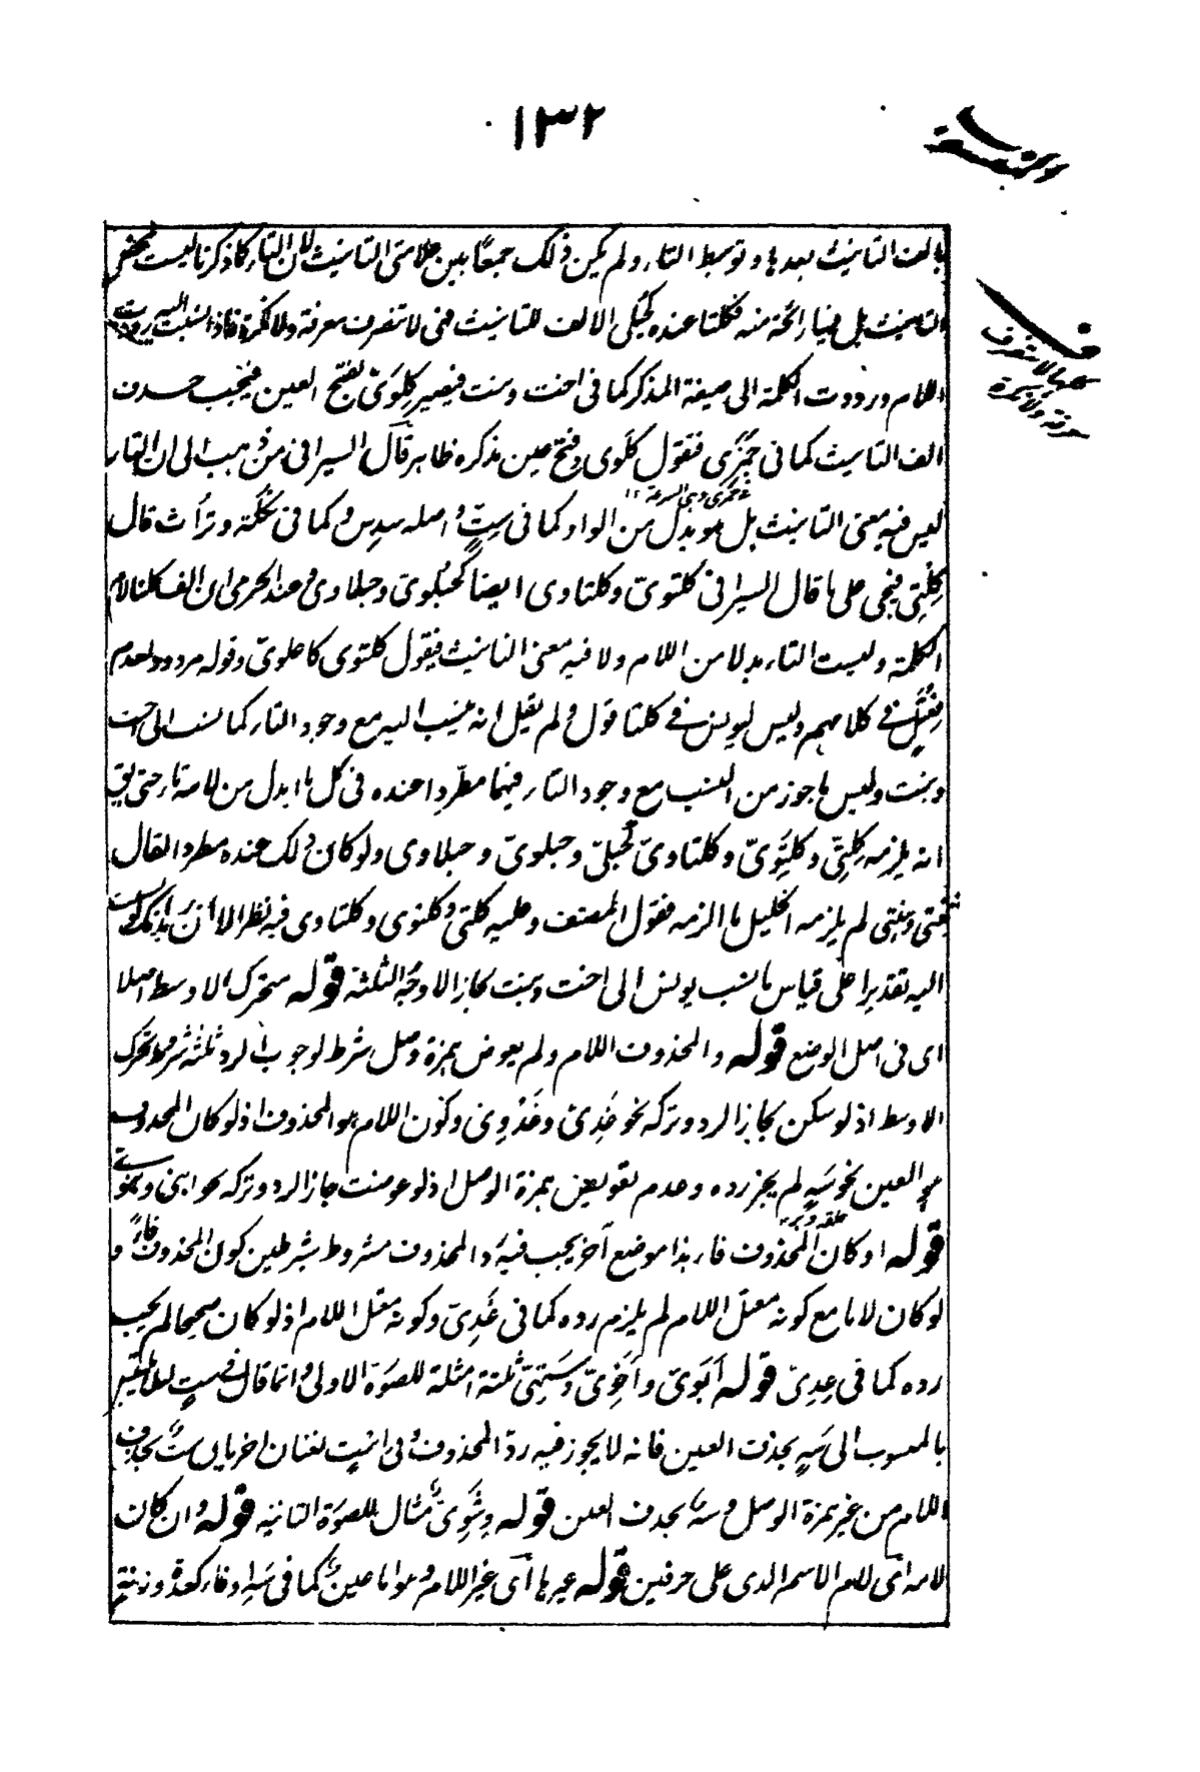 ١٣٢
بالف التانيث بعدها وتوسط التاء ولم يكن ذلك جمعا بين علامتى التانيث لان التاء كما ذكرنا ليست لمحض
التانيث بل فيها رائحة منه فكلتا عنده كحبلى الالف للتانيث فهى لا تنصرف معرفة ولا نكرة فاذا نسبت اليه رددت
اللام ورددت الكلمة الى صيغة المذكر كما فى اخت وبنت فيصير كِلَوَىّ بفتح العين فيجب حذف
الف التانيث كما فى جَمَزَى فتقول كِلَوى وفتح عين مذكره ظاهر قال السيرافى من ذهب الى ان التاء
جمزى وهى السرعة ١٢
ليس فيه معنى التانيث بل هو بدل من الواو كما فى ستٍّ واصله سِدس وكما فى تكلة وتراث قال
كِلْتِىّ فيجئ على ما قال السيرافى كلتوىّ وكلتاوى ايضا كحُبلوىّ وحبلاوى وعند الجرمى ان الف كلتا لام
الكلمة وليست التاء بدلا من اللام ولا فيه معنى التانيث فيقول كلتوى كاعلوىّ وقوله مردود لعدم
فِعْتَلٍ فى كلامهم وليس ليونس فى كلتا قول ولم يقل انه ينسب اليه مع وجود التاء كما نسب الى اخت
وبنت وليس ما جوز من النسب مع وجود التاء فيهما مطّردا عنده فى كل ما ابدل من لامه تاء حتى يق
انه يلزمه كِلتِىّ وكِلتَوىّ وكلتاوىّ كحُبلىّ وحبلوىّ وحبلاوى ولو كان ذلك عنده مطردا لقال
هنتى ومنتى لم يلزمه الخليل ما الزمه فقول المصنف وعليه كلتى وكلتوى وكلتاوى فيه نظر الا ان يريد انك لو نسبت
اليه تقديرا على قياس ما نسب يونس الى اخت وبنت لجاز الاوجه الثلثة قوله متحرك الاوسط اصلا
اى فى اصل الوضع قوله والمحذوف اللام ولم يعوض همزة وصل شرط لوجوب الرد ثلثة شروط تحرك
الاوسط اذ لو سكن لجاز الرد وتركه نحو غدِىّ وغَدْوِىّ وكون اللام هو المحذوف اذ لو كان المحذوف
هو العين نحو سَهٍ لم يجز رده وعدم تعويض همزة الوصل اذ لو عوضت جاز الرد وتركه نحو ابنى وبنوى
قوله او كان المحذوف فاء هذا موضع آخر يجب فيه رد المحذوف مشروط بشرطين كون المحذوف فاءً و
لو كان لاما مع كونه معتلّ اللام لم يلزم رده كما فى غَدِىّ وكونه معتل اللام اذ لو كان صحيحا لم يجب
رده كما فى عِدِىّ قوله اَبَوىّ واَخَوِىّ وسَتَهِىّ ثلثة امثلة للصورة الاولى وانما قال فى ستٍ لئلا يلتبس
بالمنسوب الى سَهٍ بحذف العين فانه لا يجوز فيه ردّ المحذوف وفى استٍ لغتان اخريان ستٌ بحذف
اللام من غير همزة الوصل وسهٌ بحذف العين قوله وِشَوِىّ مثال للصورة الثانية قوله وان كان
لامه اى لام الاسم الذى على حرفين قوله غيرها اى غير اللام وهو اما عين كما فى سَهٍ او فاء كعدة وزنةٍ